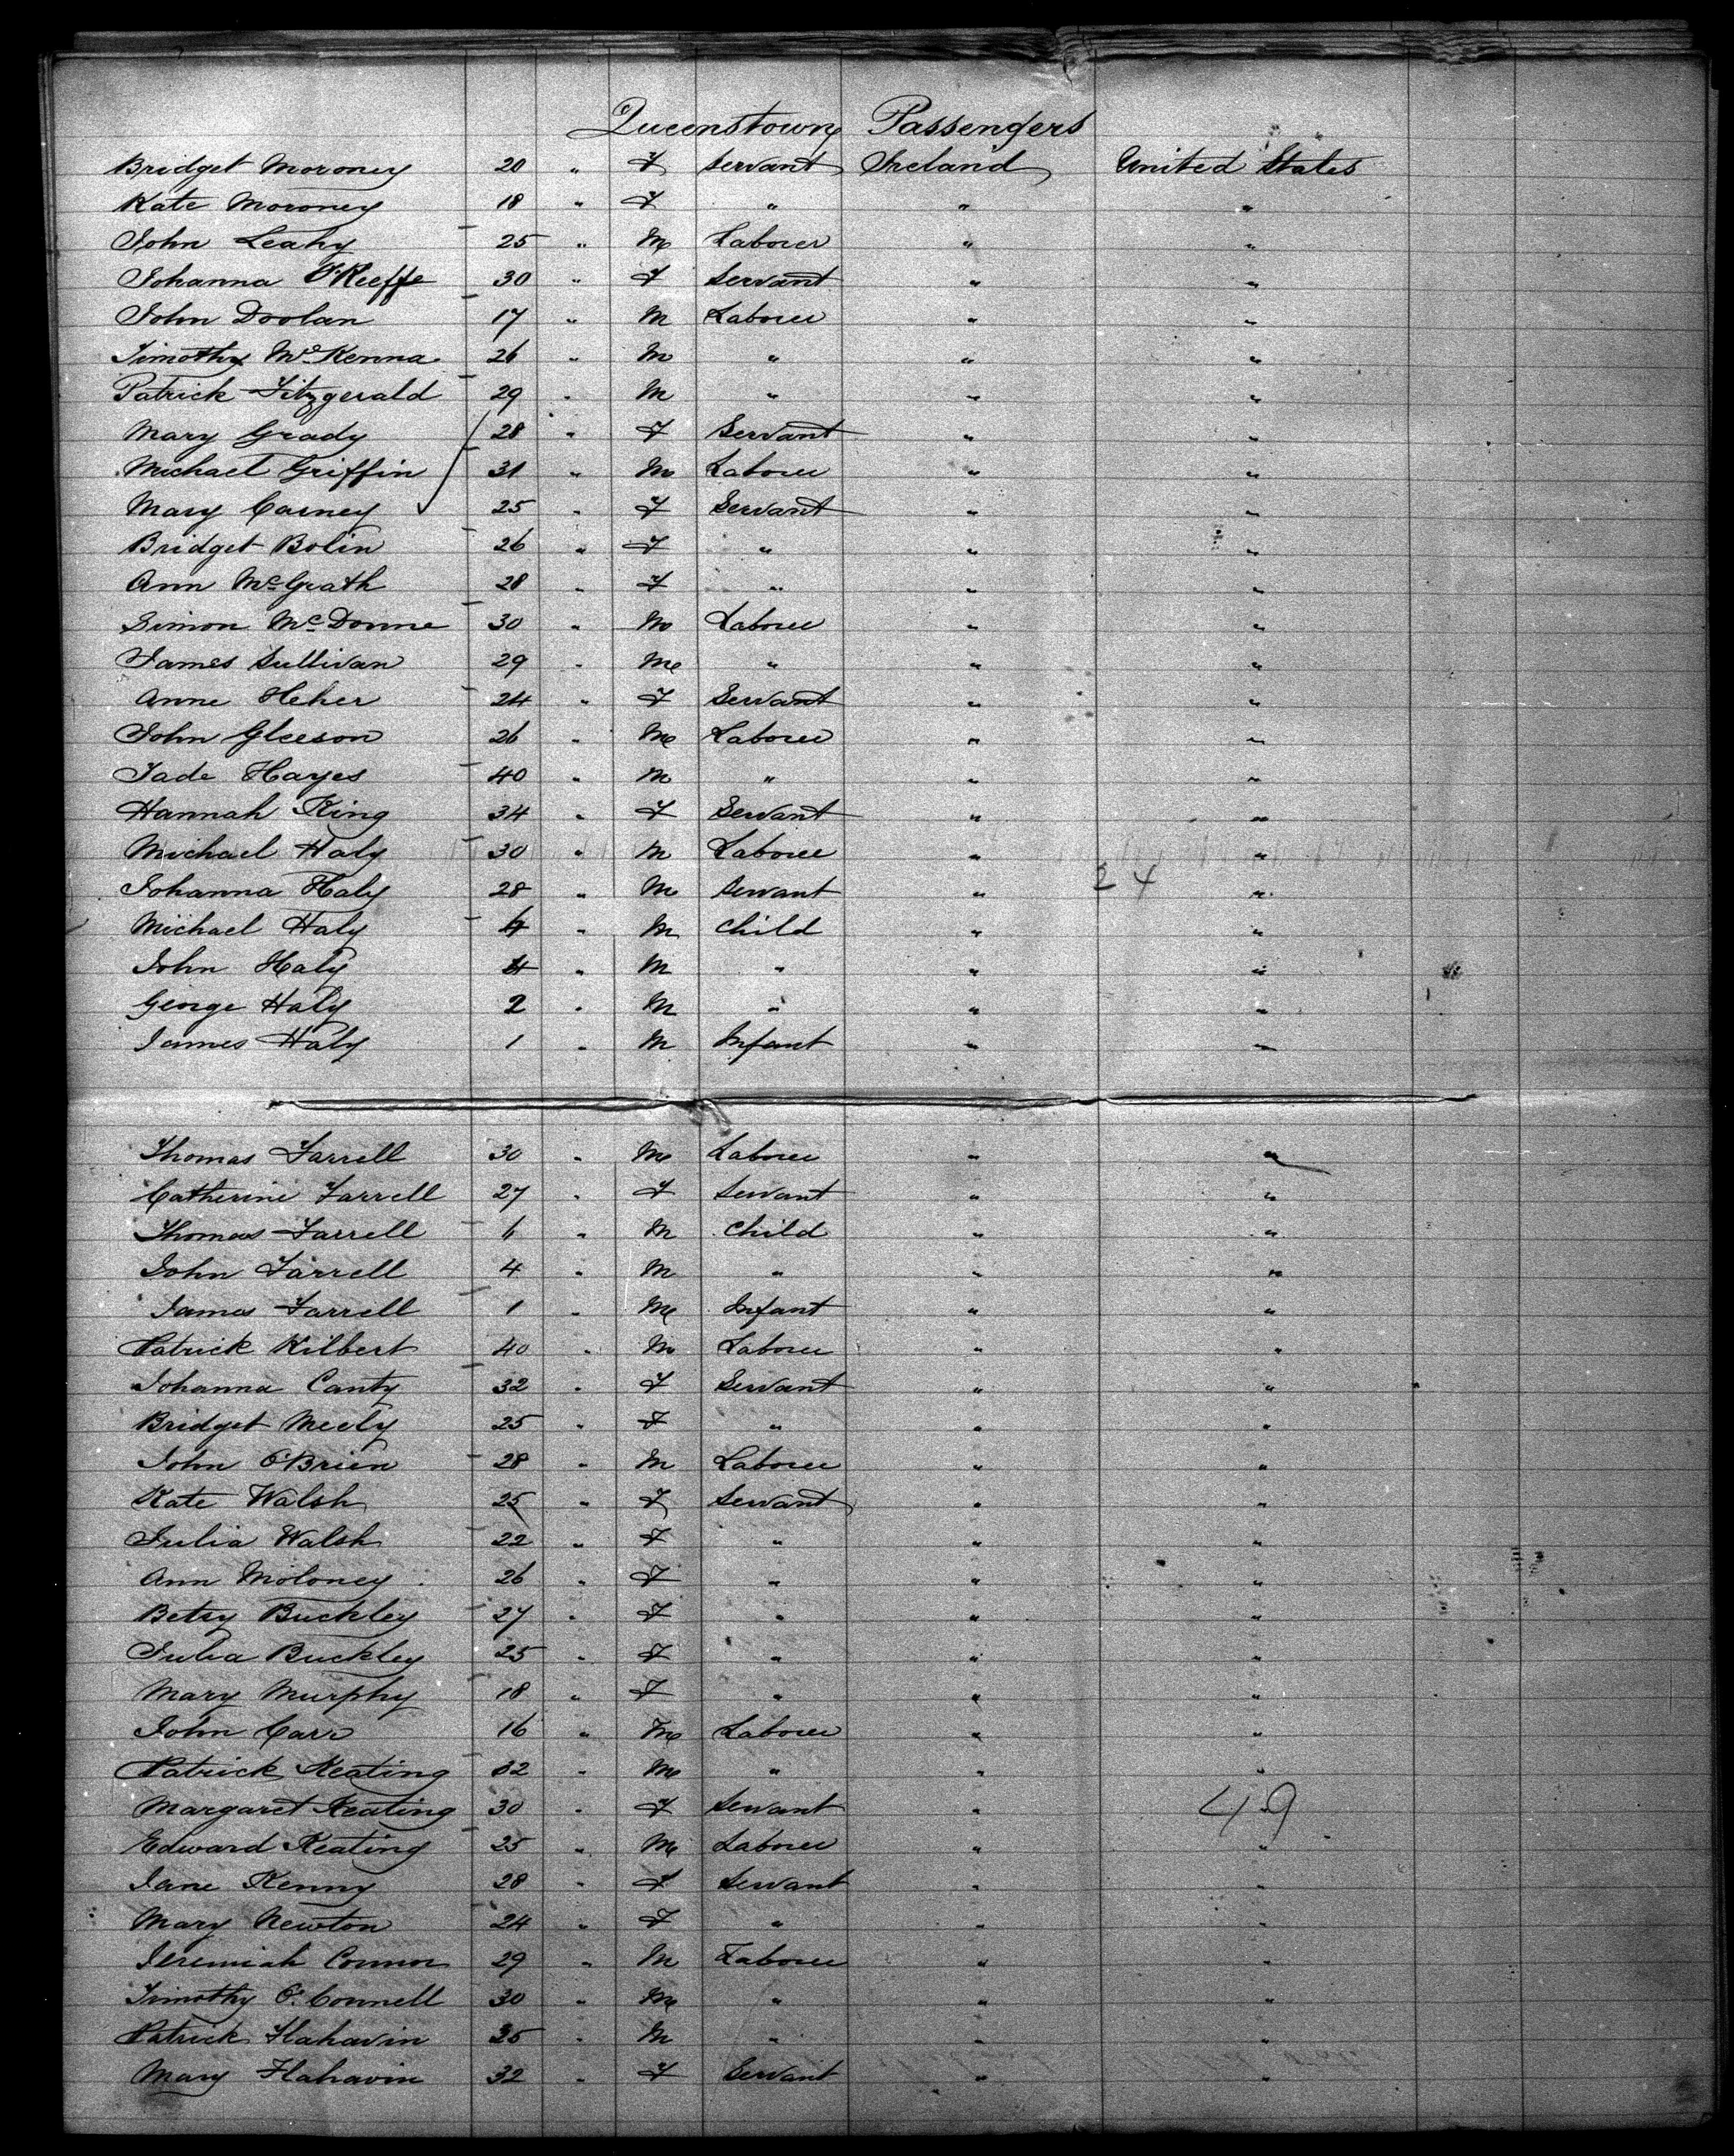 Queenstown Passengers
Bridget Moroney 20 " F Servant Ireland United States
Kate Moroney 18 " F " " "
John Leahy 25 " M Laborer " "
Johanna O'Keeffe 30 " F Servant " "
John Doolan 17 " M Laborer " "
Timothy McKenna 26 " M " " "
Patrick Fitzgerald 29 " M " " "
Mary Grady 28 " F Servant " "
Michael Griffin 31 " M Laborer " "
Mary Carney 25 " F Servant " "
Bridget Bolin 26 " F " " "
Ann McGrath 28 " F " " "
Simon McDonne 30 " M Laborer " "
James Sullivan 29 " M " " "
Anne Heher 24 " F Servant " "
John Gleeson 26 " M Laborer " "
Jade Hayes 40 " M " " "
Hannah King 34 " F Servant " "
Michael Haly 30 " M Laborer " "
Johanna Haly 28 " M Servant " 24 "
Michael Haly " M Child " "
John Haly 4 " M " " "
George Haly 2 " M " " "
James Haly 1 " M Infant " "
Thomas Farrell 30 " M Laborer " "
Catherine Farrell 27 " F Servant " "
Thomas Farrell 6 " M Child " "
John Farrell 4 " M " " "
James Farrell 1 " M Infant " "
Patrick Kilbert 40 " M Laborer " "
Johanna Canty 32 " F Servant " "
Bridget Meely 25 " F " " "
John O'Brien 28 " M Laborer " "
Kate Walsh 25 " F Servant " "
Julia Walsh 22 " F " " "
Ann Moloney 26 " F " " "
Betsy Buckley 27 " F " " "
Julia Buckley 25 " F " " "
Mary Murphy 18 " F " " "
John Carr 16 " M Laborer " "
Patrick Keating 32 " M " " "
Margaret Keating 30 " F Servant " 49 "
Edward Keating 25 " M Laborer " "
Jane Kenny 28 " F Servant " "
Mary Newton 24 " F " " "
Jeremiah Connor 29 " M Laborer " "
Timothy O'Connell 30 " M " " "
Patrick Flahavin 35 " M " " "
Mary Flahavin 32 " F Servant " "